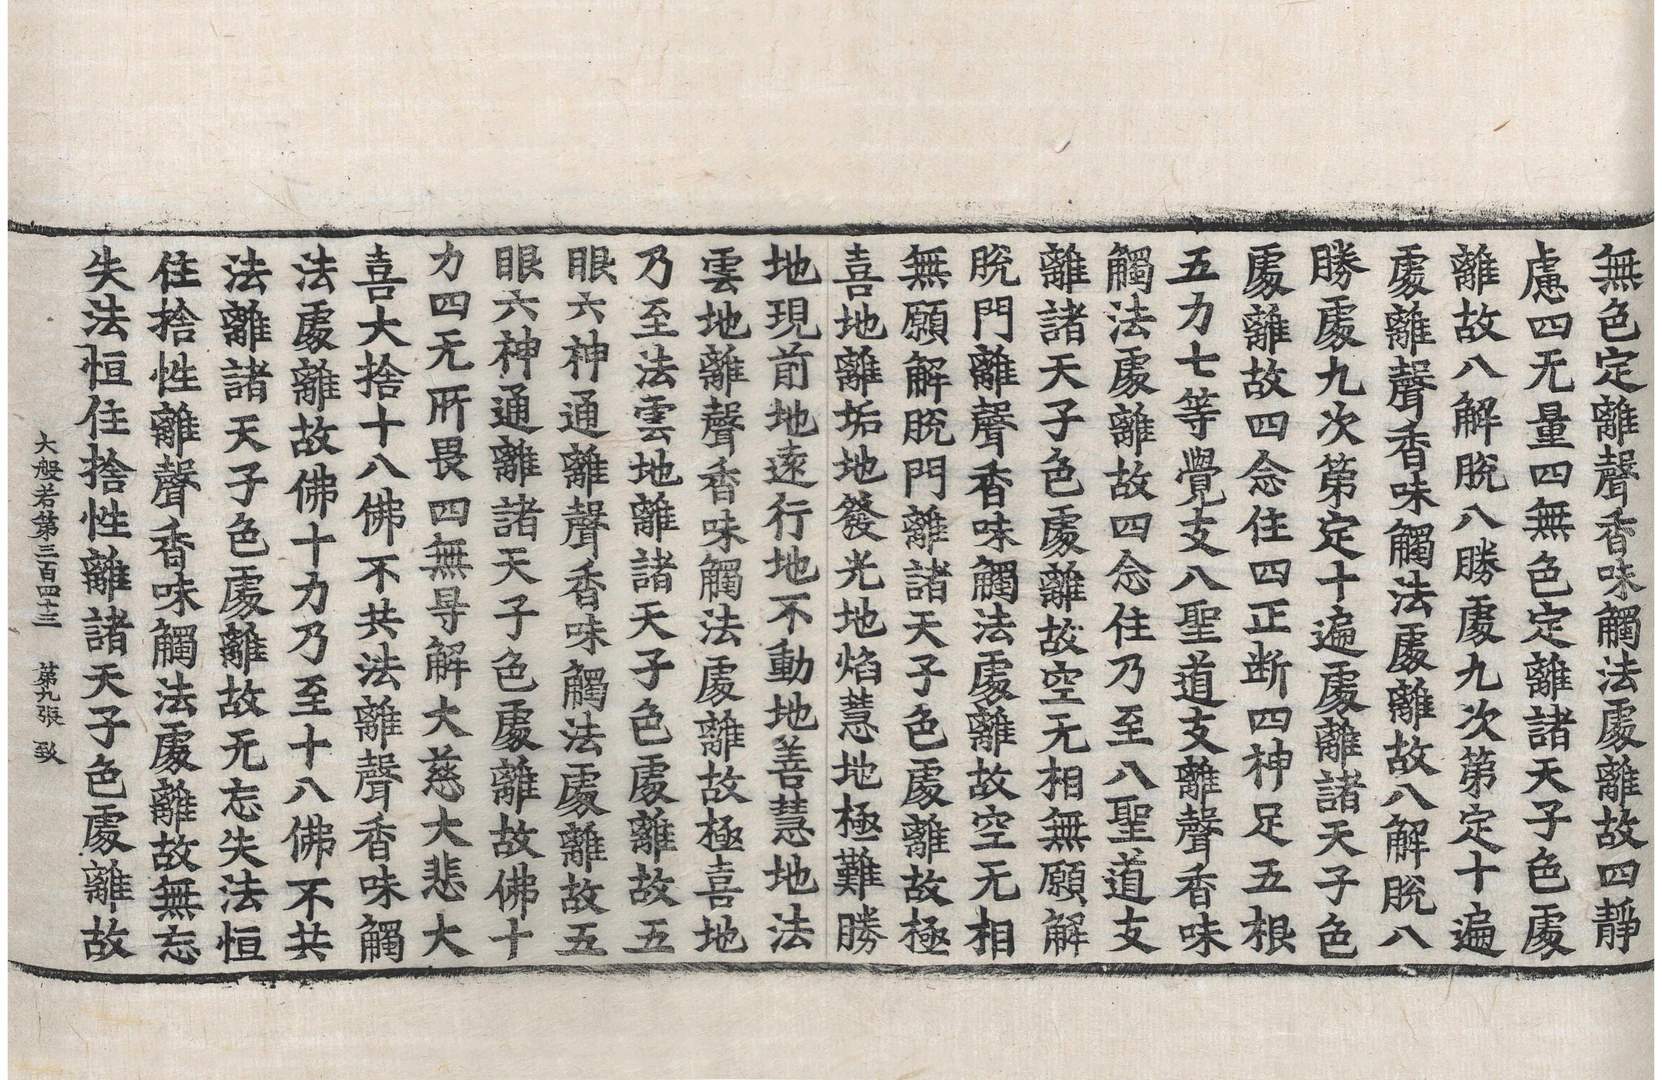 無色定離聲香味觸法處離故四靜
慮四无量四無色定離諸天子色處
離故八解脫八勝處九次第定十遍
處離聲香味觸法處離故八解脫八
勝處九次第定十遍處離諸天子色
處離故四念住四正断四神足五根
五力七等覺支八聖道支離聲香味
觸法處離故四念住乃至八聖道支
離諸天子色處離故空无相無願解
脫門離聲香味觸法處離故空无相
無願解脫門離諸天子色處離故極
喜地離垢地發光地焰慧地極難勝
地現前地遠行地不動地善慧地法
雲地離聲香味觸法處離故極喜地
乃至法雲地離諸天子色處離故五
眼六神通離聲香味觸法處離故五
眼六神通離諸天子色處離故佛十
力四无所畏四無㝵解大慈大悲大
喜大捨十八佛不共法離聲香味觸
法處離故佛十力乃至十八佛不共
法離諸天子色處離故无忘失法恒
住捨性離聲香味觸法處離故無忘
失法恒住捨性離諸天子色處離故
大般若第三百四十三 第九張 致